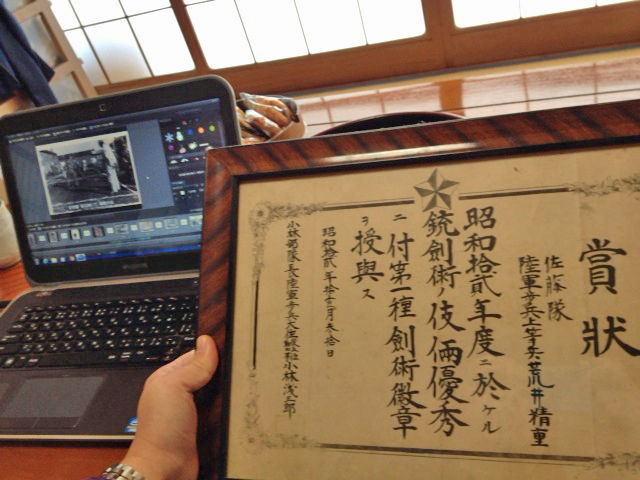 賞狀
佐藤隊
陸軍歩兵上等兵荒井精重
昭和拾貳年度ニ於ケル
銃劍術ノ伎倆優秀
ニ付第一種劍術徽章
ヲ授與ス
昭和拾貳年拾一月叁拾日
小林部隊長陸軍歩兵大佐小林浅三郎